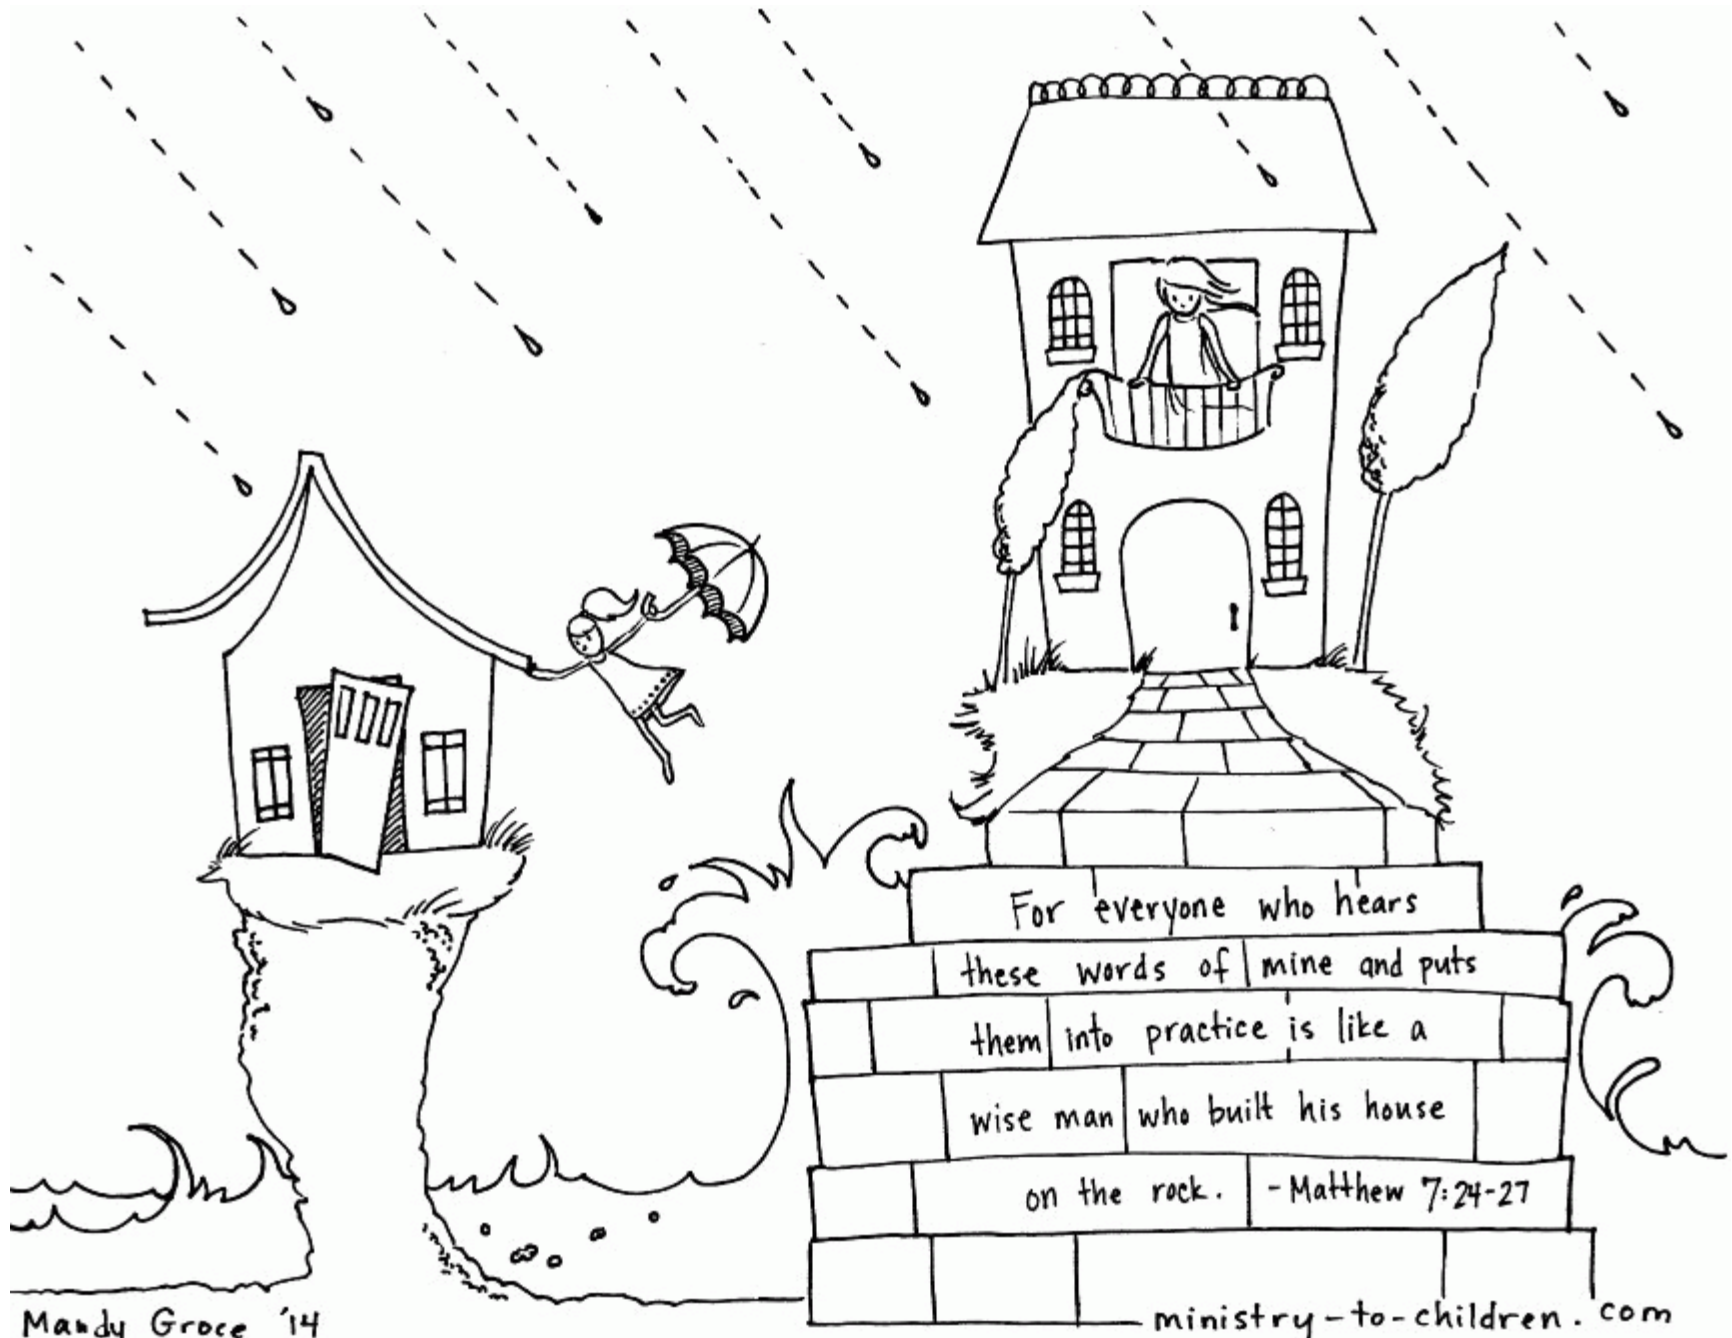 For everyone who hears
these words of mine and puts
them into practice is like a
wise man who built his house
on the rock. -Matthew 7:24-27
Mandy Groce '14
ministry-to-children.com